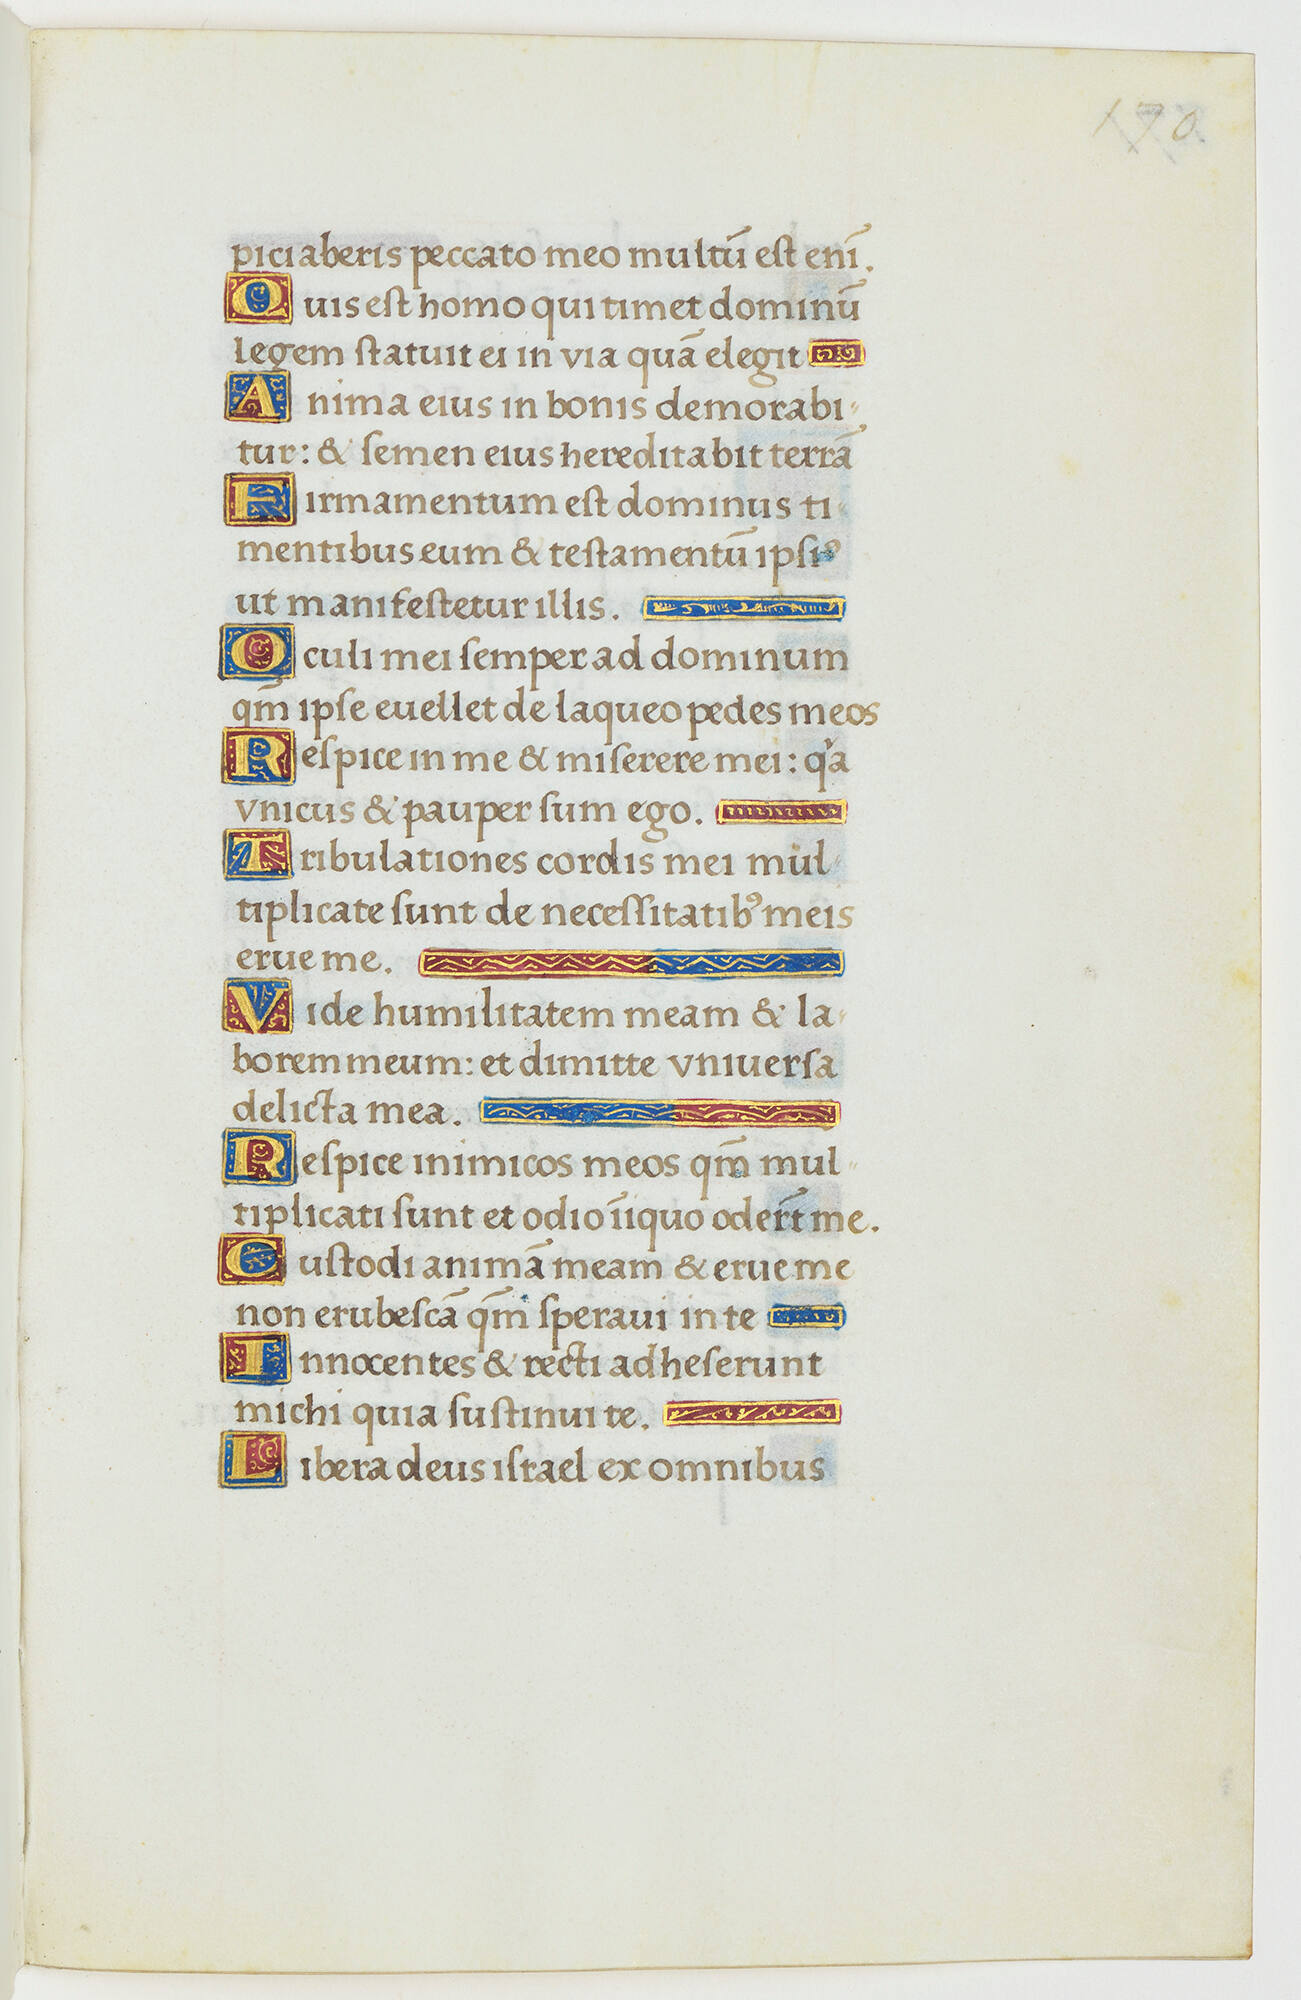 170
piciaberis peccato meo multū est enī.
Quis est homo qui timet dominū
legem statuit ei in via quā elegit
Anima eius in bonis demorabi-
tur: & semen eius hereditabit terrā
Firmamentum est dominus ti-
mentibus eum & testamentū ipsiꝰ
ut manifestetur illis.
Oculi mei semper ad dominum
qm̄ ipse euellet de laqueo pedes meos
Respice in me & miserere mei: qͥa
vnicus & pauper sum ego.
Tribulationes cordis mei mul-
tiplicate sunt de necessitatibꝰ meis
erue me.
Vide humilitatem meam & la-
borem meum: et dimitte vniuersa
delicta mea.
Respice inimicos meos qm̄ mul-
tiplicati sunt et odio īiquo oderūt me.
Custodi animā meam & erue me
non erubescā qm̄ speraui in te
Innocentes & recti adheserunt
michi quia sustinui te.
Libera deus israel ex omnibus